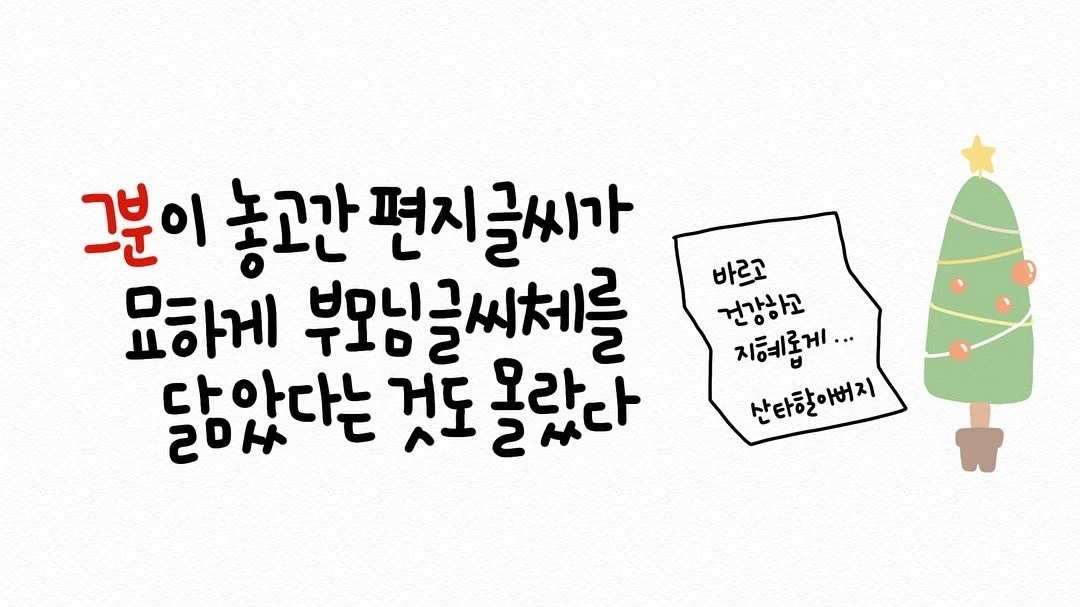 그분이 놓고간 편지글씨가
묘하게 부모님글씨체를
닮았다는 것도 몰랐다
바르고
건강하고
지혜롭게...
산타할아버지